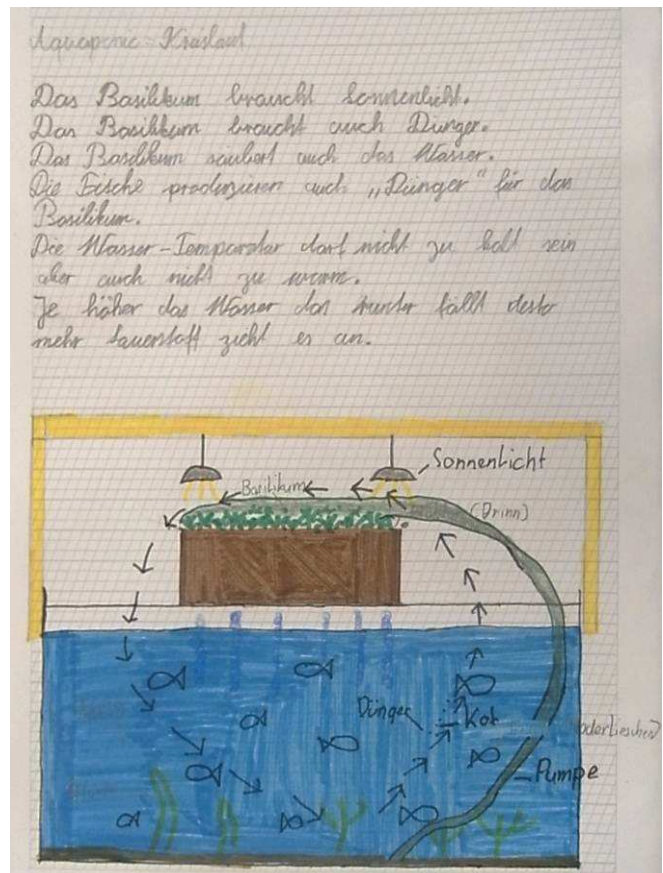 Aquaponic-Kreislauf
Das Basilikum braucht Sonnenlicht.
Das Basilikum braucht auch Dünger.
Das Basilikum säubert auch das Wasser.
Die Fische produzieren auch „Dünger“ für das
Basilikum.
Die Wasser-Temperatur darf nicht zu kalt sein
aber auch nicht zu warm.
Je höher das Wasser das runter fällt desto
mehr Sauerstoff zieht es an.
Sonnenlicht
Basilikum
(Drinn)
Dünger
Kot
Pumpe